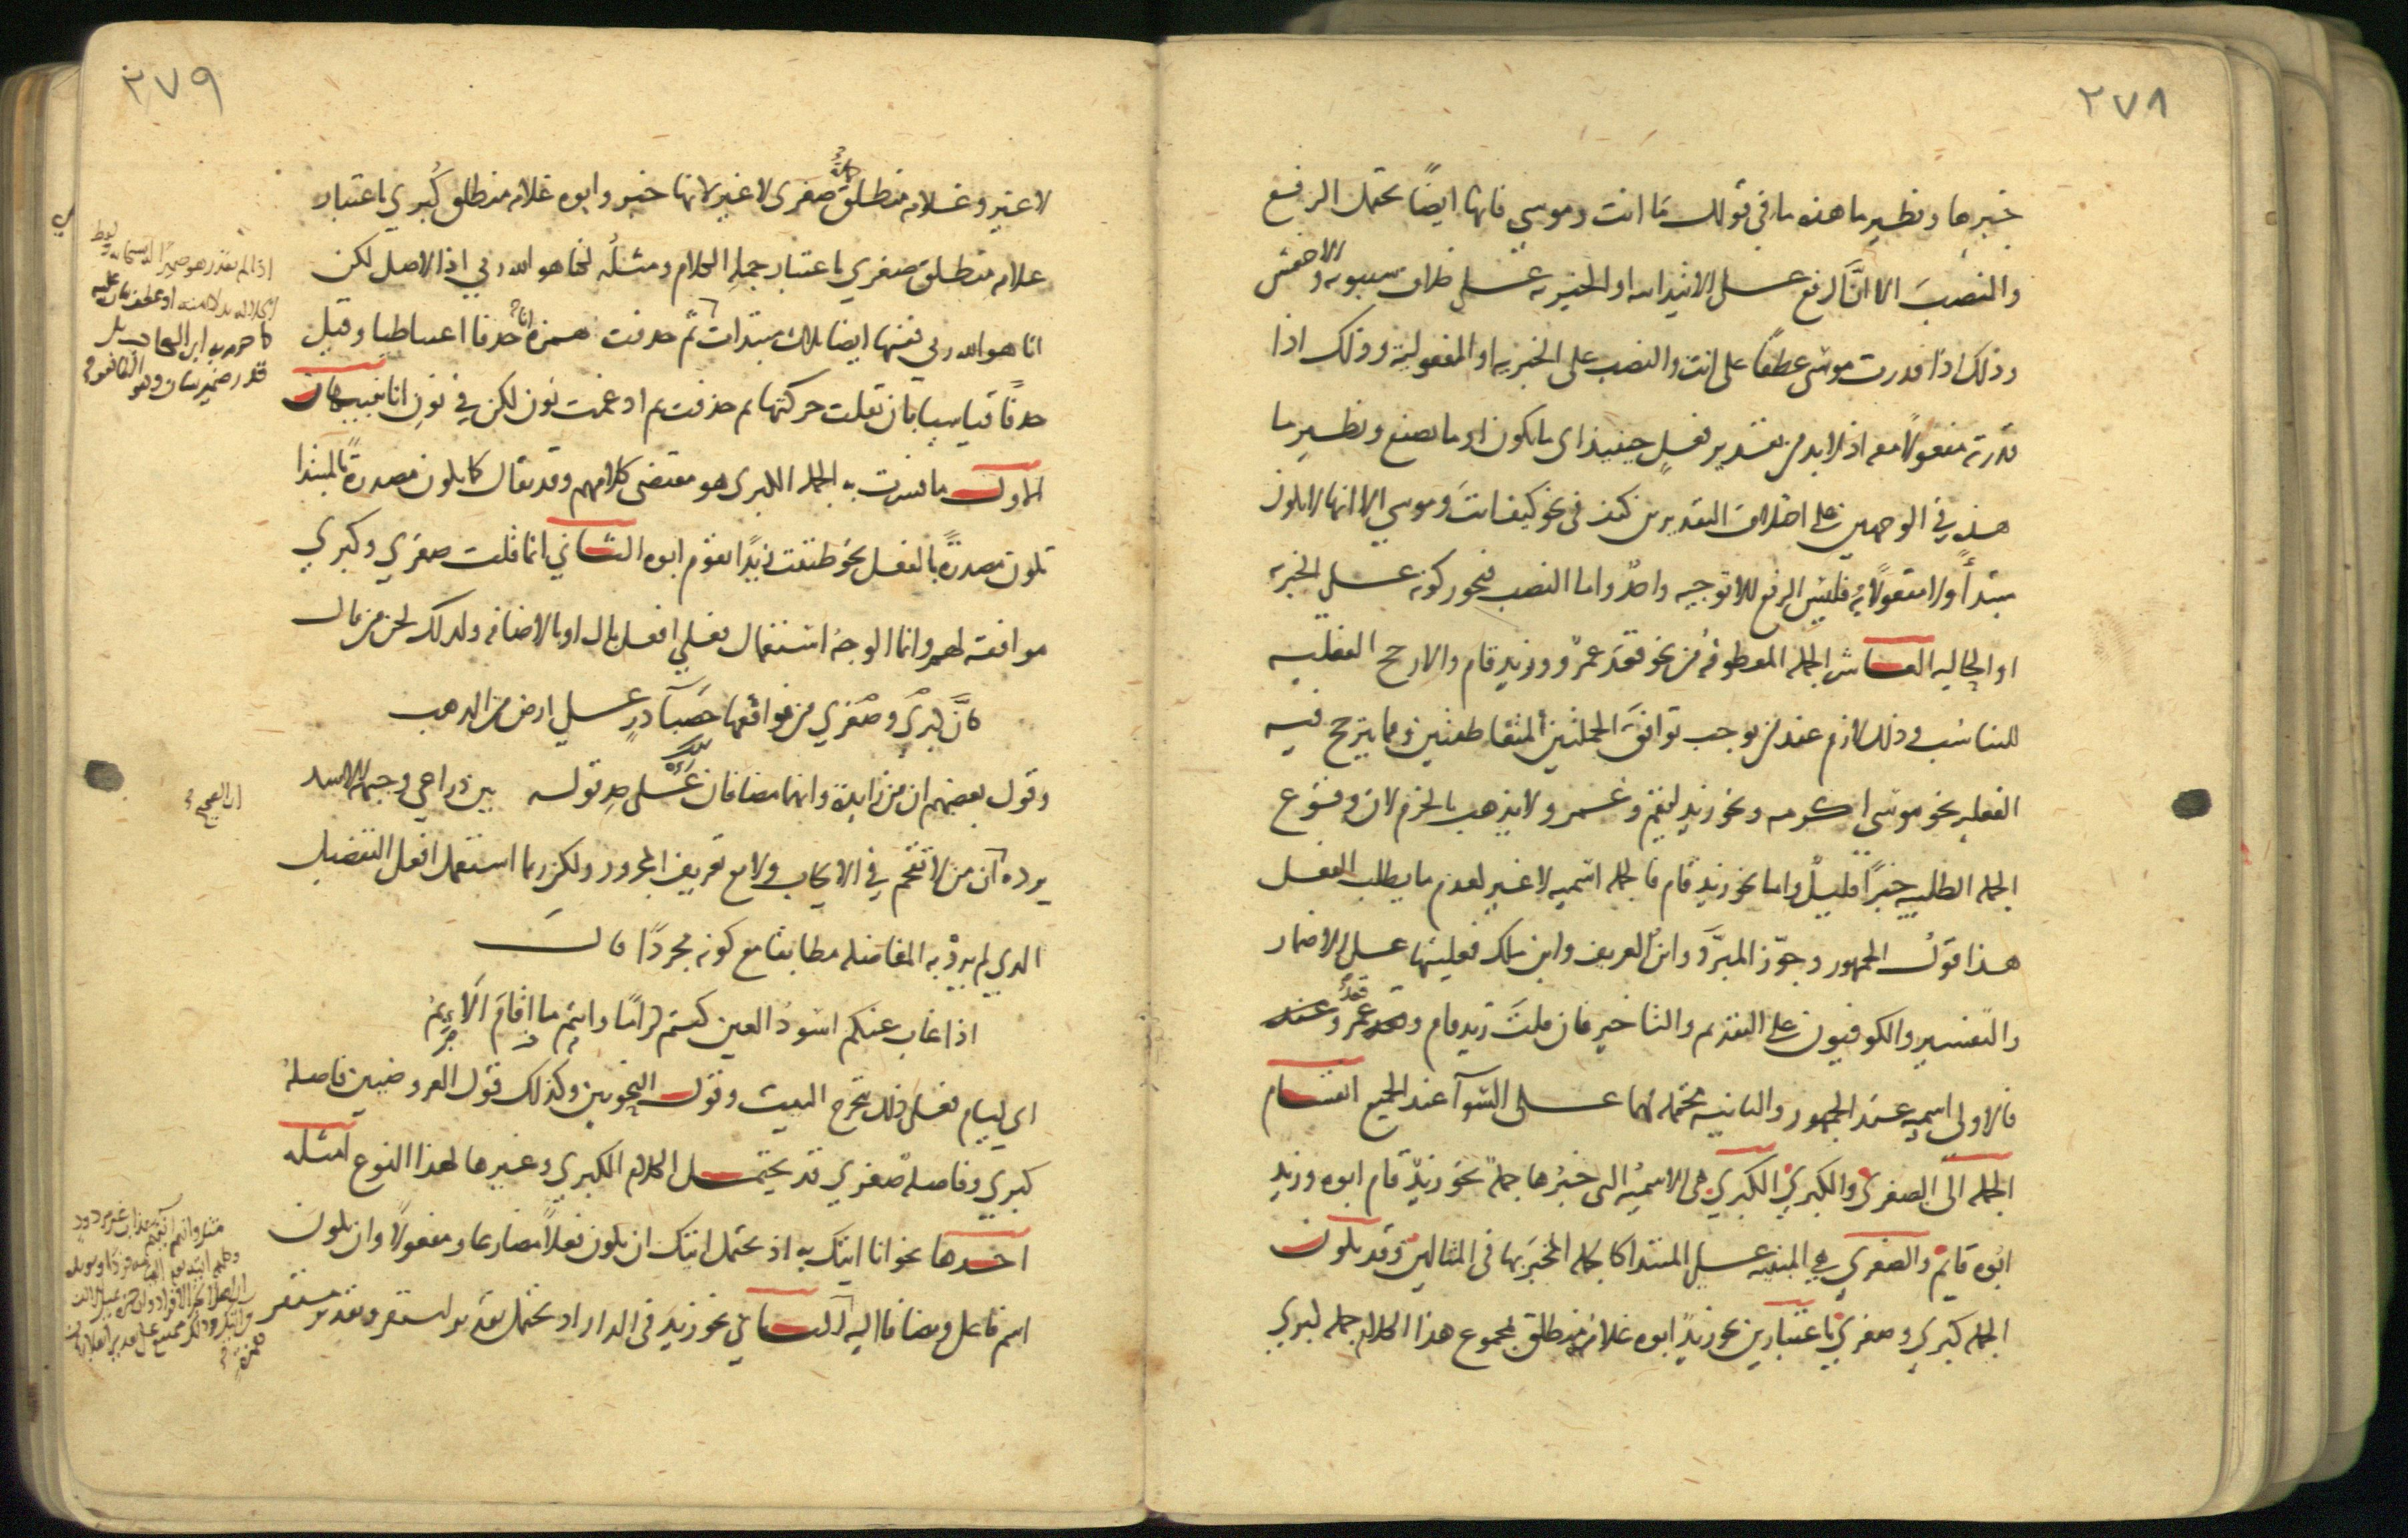 ٢٧٨
خبرها ونظير ما هذه ما في قولك ما انت وموسى فانها ايضًا تحتمل الرفع
والنصبَ الا انَّ الرفع على الابتدائيه او الخبريه على خلاف سيبويه والاخفش
وذلك اذا قدرت موسى عطفًا على انت والنصب على الخبريه او المفعولية وذلك اذا
قدرته مفعولًا معه اذ لا بد من تقدير فعلٍ حينيذ اى ما تكون او ما تصنع ونظير ما
هذه في الوجهين على اختلاف التقديرين كيف في نحو كيف انتَ وموسى الا انها لا تكون
مبتدأً ولا مفعولًا به فليس للرفع الا توجيه واحدٌ واما النصب فيجوز كونه على الخبريه
او الحاليه العاشر الجمله المعطوفه من نحو قعد عمرٌو وزيد قام والارجح الفعليه
للتناسب وذلك لازم عند من يوجب توافقَ الجملتين المتعاطفتين ومما يترجح فيه
الفعليه نحو موسى اكرمه ونحو زيد ليقم وعمرو لا يذهب بالجزم لان وقوع
الجمله الطلبيه خبرًا قليلٌ واما نحو زيد قام فالجمله اسميه لا غير لعدم ما يطلب الفعل
هذا قولُ الجمهور وجوّز المبرَّد وابن العريف وابن مالك فعليتها على الاضمار
والتفسير والكوفيون على التقديم والتاخير فان قلتَ زيد قام و قعد عمرو عنده
فالاولى اسميه عند الجمهور والثانيه محتمله لهما على السوآ عند الجميع انقسام
الجمله الى الصغرى والكبرى الكبرى هى الاسميه التى خبرها جملهٌ نحو زيدٌ قام ابوه وزيد
ابوه قايم والصغرى هي المبنيه على المبتدا كالجمله المخبَر بها في المثالين وقد تكون
الجمله كبرى وصغرى باعتبارين نحو زيدٌ ابوه غلامُه منطلق فمجموع هذا الكلام جمله كبرى
٢٧٩
لا غير وغلامه منطلقٌ صغرى لا غير لانها خبر وابوه غلامه منطلق كُبرى باعتبار
غلامه منطلق صغرى باعتبار جملهِ الكلام ومثلُه لكنا هو الله ربي اذ الاصل لكن
انا هو الله ربى ففيها ايضا ثلاث مبتدات ثم حذفت همزة انا حذفا اعتباطيا وقيل
حذفًا قياسيا بان نقلت حركتها ثم حذفت ثم ادغمت نون لكن في نون انا تنبيهان
الاول ما فسرت به الجمله الكبرى هو مقتضى كلامهم وقد يقال كما تكون مصدرةً بالمبتدا
تكون مصدرةً بالفعل نحو ظننت زيدًا يقوم ابوه الثاني انما قلت صغرى وكبرى
موافقه لهم وانما الوجهُ استعمال فعلى افعل بال او بالاضافه ولذلك لحن من قال
كانَّ كبرى وصغرى من فواقعها حصبآ درٍ على ارض من الذهب
وقول بعضهم ان من زايدة وانهما مضافان على حد قوله بين ذراعي وجبهة الاسد
يرده انَّ من لا تقحم في الايجاب ولا مع تعريف المجرور ولكن ربما استعمل افعل التفضيل
الذي لم يردْ به المفاضله مطابقا مع كونه مجردًا قالَ
اذا غاب عنكم اسودُ العين كنتم كرامًا وانتم ما اقامَ اَلَايمُ
اى ليام فعلى ذلك يتخرج البيت وقول النحويين وكذلك قول العروضيين فاصلهٌ
كبرى وفاصلهٌ صغرى قد يحتمل الكلام الكبرى وغيرها لهذا النوع امثله
احدها نحو انا اتيك به اذ يحتمل اتيك ان يكون فعلًا مضارعا ومفعولًا وان يكونَ
اسم فاعل ومضافا اليه الثاني نحو زيدَ في الدار اذ يحتمل تقدير استقر وتقدير مستقر